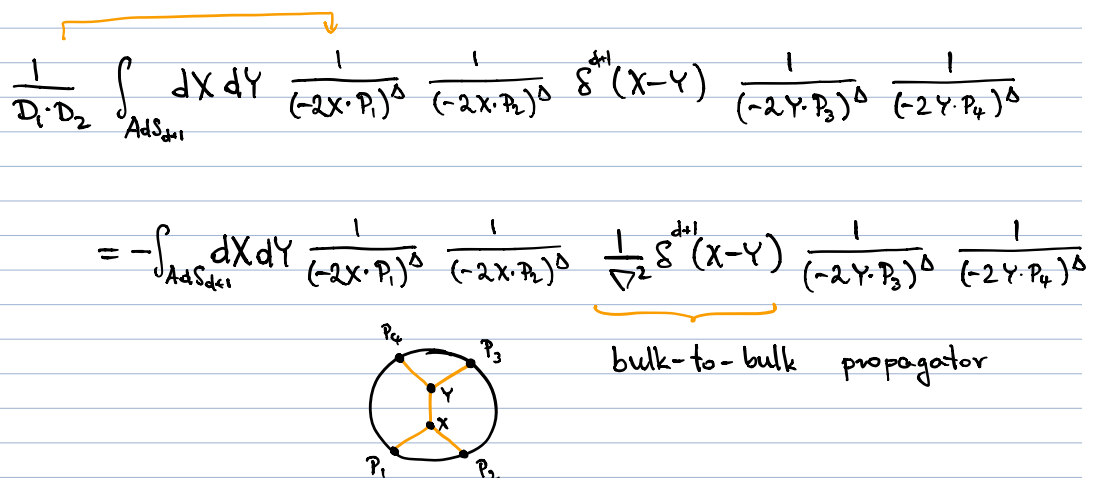 $\frac{1}{D_1 \cdot D_2} \int_{AdS_{d+1}} dX\, dY\, \frac{1}{(-2X \cdot P_1)^\Delta} \frac{1}{(-2X \cdot P_2)^\Delta} \delta^{d+1}(X-Y) \frac{1}{(-2Y \cdot P_3)^\Delta} \frac{1}{(-2Y \cdot P_4)^\Delta}$
$= -\int_{AdS_{d+1}} dX\, dY\, \frac{1}{(-2X \cdot P_1)^\Delta} \frac{1}{(-2X \cdot P_2)^\Delta} \frac{1}{\nabla^2} \delta^{d+1}(X-Y) \frac{1}{(-2Y \cdot P_3)^\Delta} \frac{1}{(-2Y \cdot P_4)^\Delta}$
bulk-to-bulk propagator
P_4 P_3
Y
X
P_1 P_2